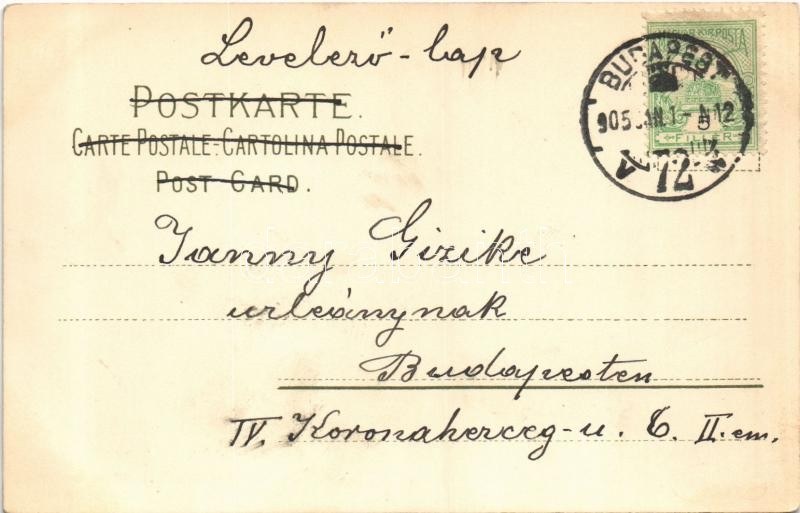 Levelező-lap
POSTKARTE.
CARTE POSTALE-CARTOLINA POSTALE.
POST CARD.
MAGYAR KIR. POSTA
5
FILLÉR
BUDAPEST
905 JAN. 1
72
Janny Gizike
urleánynak
Budapesten
IV. Koronaherceg-u. 6. II. em.